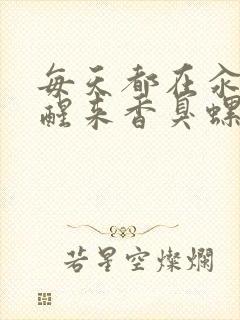 每天都在汆
醒来香臭螺
若星空燦爛